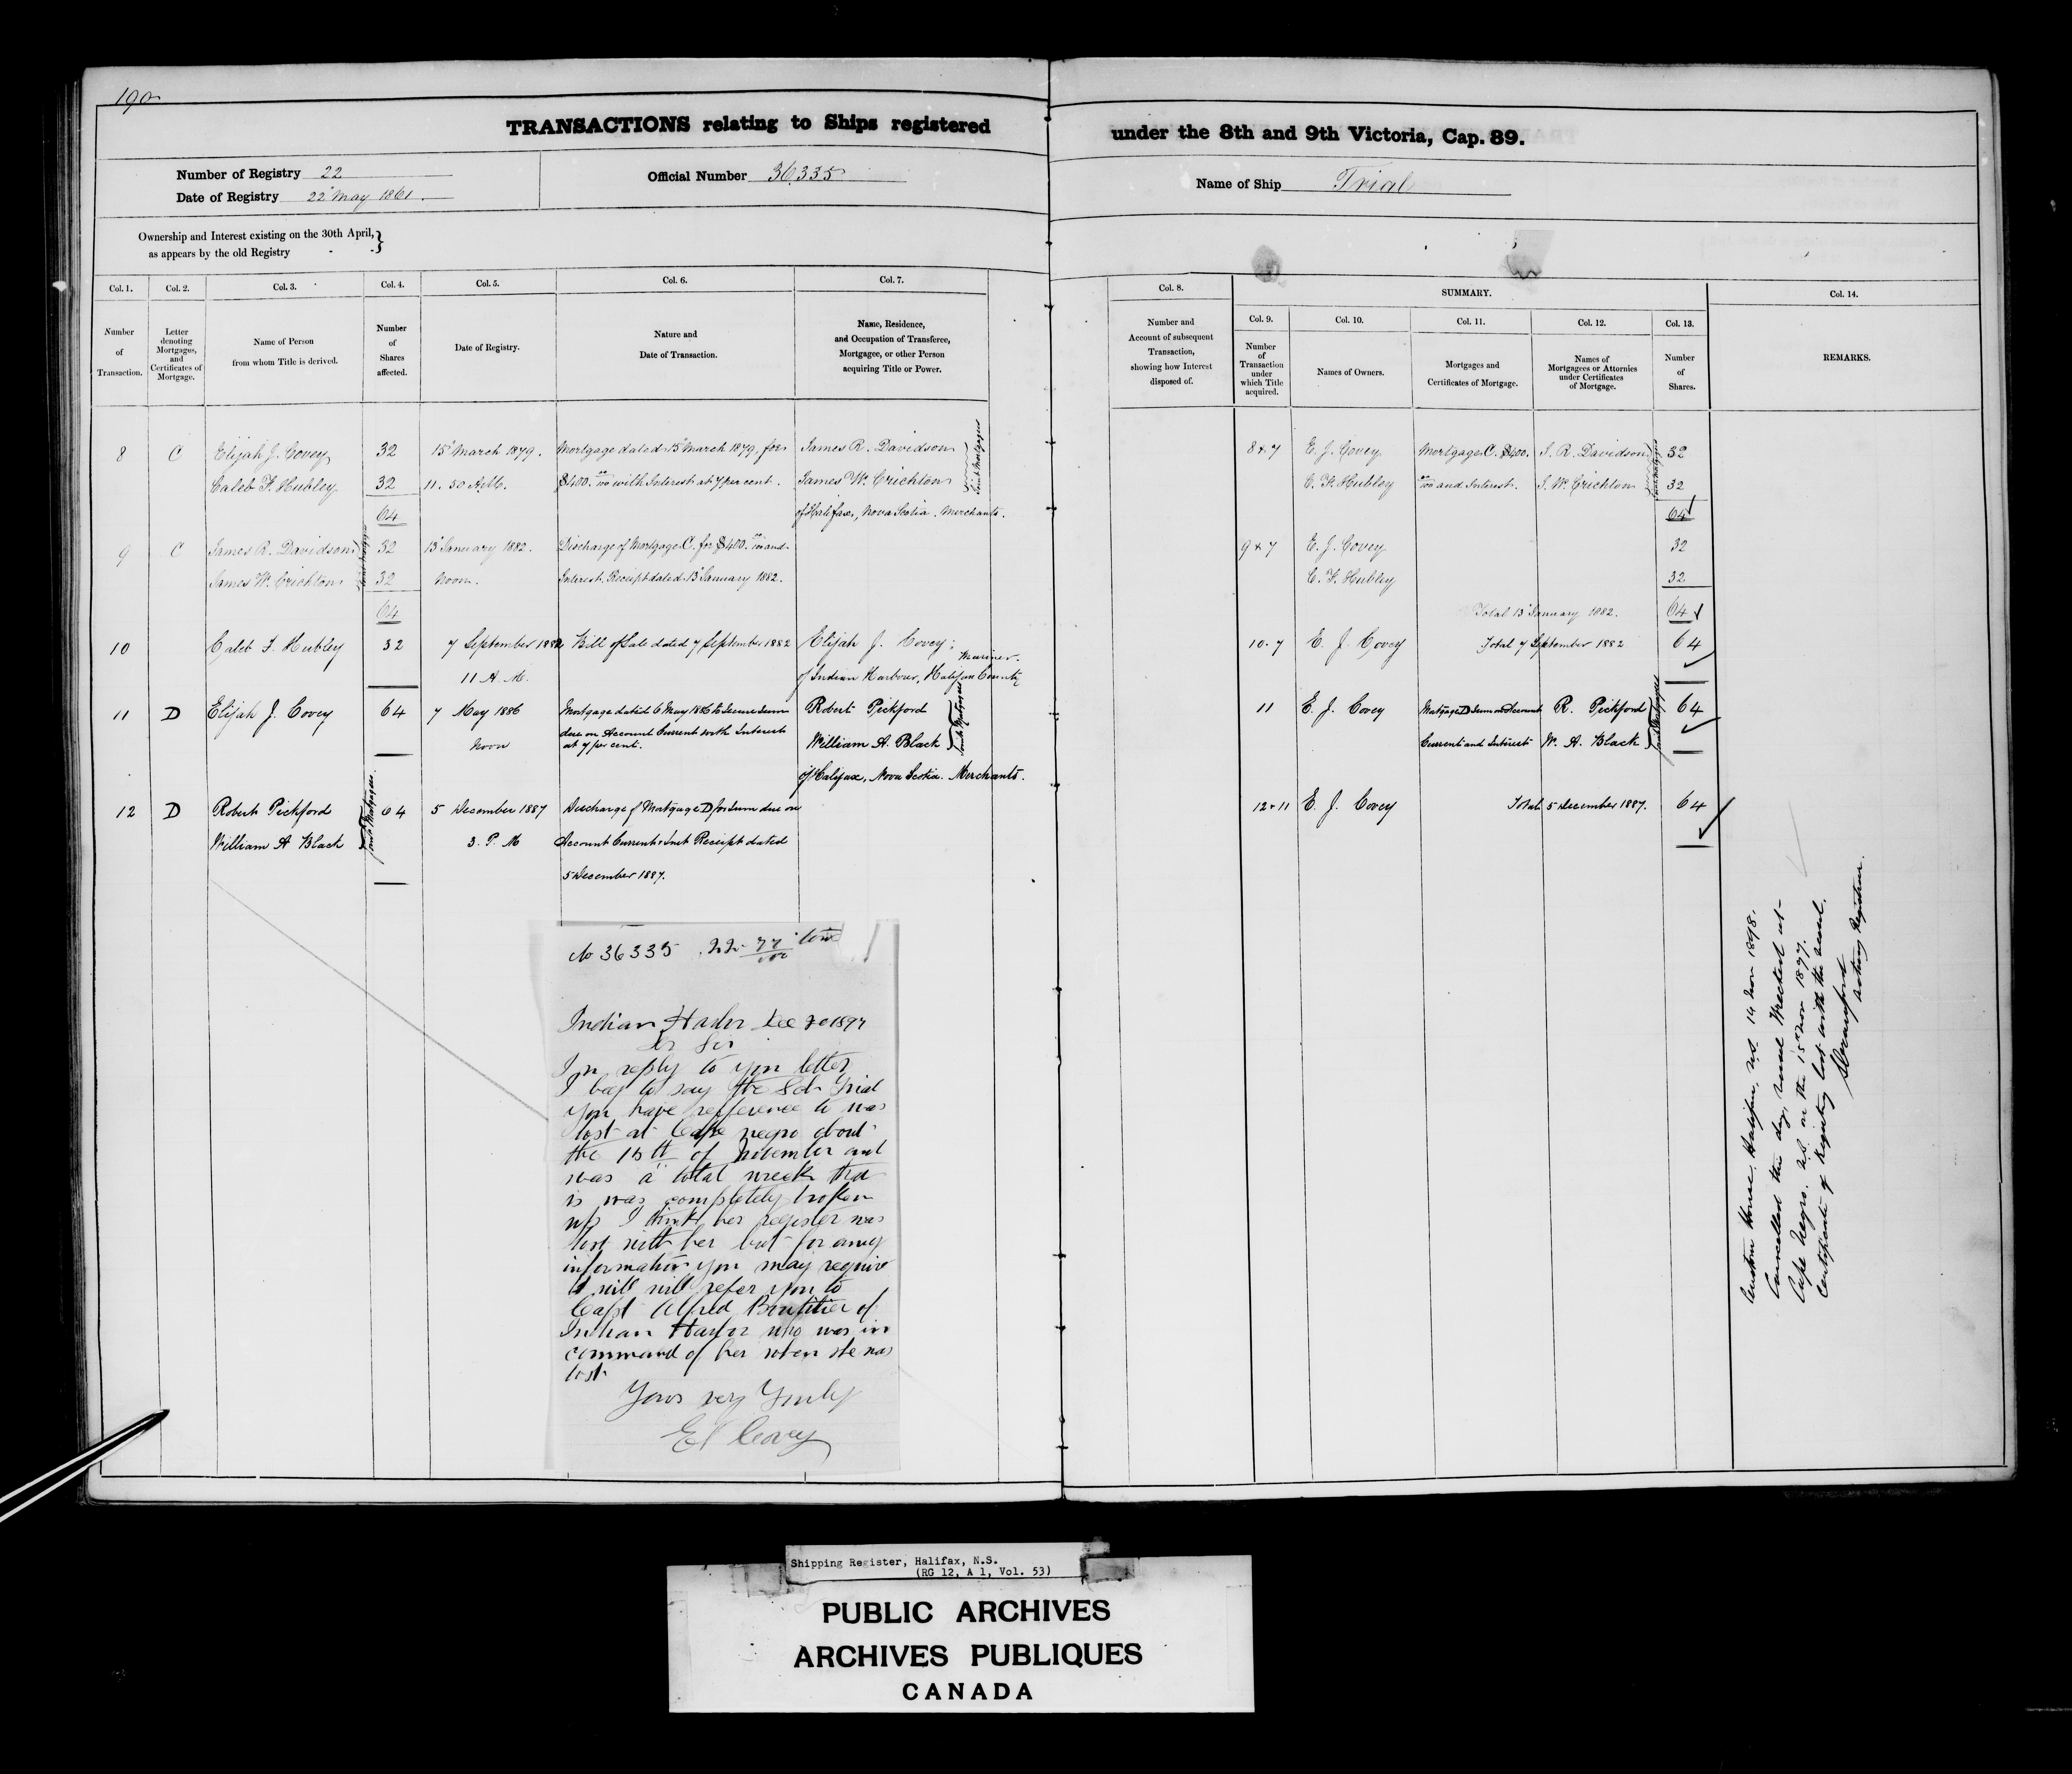 190
TRANSACTIONS relating to Ships registered
under the 8th and 9th Victoria, Cap. 89.
Number of Registry 22
Date of Registry 22 May 1861.
Official Number 36,335
Name of Ship Trial
Ownership and Interest existing on the 30th April, }
as appears by the old Registry
Col. 1. Col. 2. Col. 3. Col. 4. Col. 5. Col. 6. Col. 7.
Number of Transaction.
Letter denoting Mortgages, and Certificates of Mortgage.
Name of Person from whom Title is derived.
Number of Shares affected.
Date of Registry.
Nature and Date of Transaction.
Name, Residence, and Occupation of Transferee, Mortgagee, or other Person acquiring Title or Power.
8 C Elijah J. Covey 32 15 March 1879. Mortgage dated 15 March 1879, for James R. Davidson
Caleb F. Hubley 32 11. 50 A.M. $400. 00/100 with Interest at 7 per cent. James W. Crichton
Joint Mortgagees
64 of Halifax, Nova Scotia. Merchants.
9 C James R. Davidson 32 13 January 1882. Discharge of Mortgage C. for $400. 00/100 and
James W. Crichton 32 Noon. Interest. Receipt dated 13 January 1882.
Joint Mortgagees
64
10 Caleb F. Hubley 32 7 September 1882 Bill of Sale dated 7 September 1882 Elijah J. Covey; Mariner.
11 A.M. of Indian Harbour, Halifax County
11 D Elijah J. Covey 64 7 May 1886 Mortgage dated 6 May 1886 to secure sum Robert Pickford
Noon due on Account Current with Interest at 7 per cent. William A. Black
Joint Mortgagees
of Halifax, Nova Scotia. Merchants.
12 D Robert Pickford 64 5 December 1887 Discharge of Mortgage D for sum due on
William A Black 3. P. M Account Current & Int. Receipt dated
Joint Mortgagees
5 December 1887.
No 36335 22 77/100 tons
Indian Harbor Dec 20 1897
Dr Sir
In reply to you letter
I beg to say the Sch Trial
you have refference to was
lost at Cape negro about
the 15th of November and
was a total wreck that
is was completely broken
up I think her register was
lost with her but for any
information you may require
I will will refer you to
Capt Alfred Boutilier of
Indian Harbor who was in
command of her when she was
lost
Yours very Truly
E J Covey
Col. 8. SUMMARY. Col. 14.
Col. 9. Col. 10. Col. 11. Col. 12. Col. 13.
Number and Account of subsequent Transaction, showing how Interest disposed of.
Number of Transaction under which Title acquired.
Names of Owners.
Mortgages and Certificates of Mortgage.
Names of Mortgagees or Attornies under Certificates of Mortgage.
Number of Shares.
REMARKS.
8 & 7 E. J. Covey Mortgage C. $400. J. R. Davidson 32
C. F. Hubley 00/100 and Interest. J. W. Crichton 32
Joint Mortgagees
64
9 & 7 E. J. Covey 32
C. F. Hubley 32
Total 13 January 1882. 64
10. 7 E. J. Covey Total 7 September 1882 64
11 E. J. Covey Mortgage D Sum on Account R. Pickford 64
Current and Interest W. A. Black
Joint Mortgagees
12 & 11 E. J. Covey Total 5 December 1887. 64
Custom House, Halifax, N.S. 14 Nov 1898.
Cancelled this day, vessel Wrecked at
Cape Negro. N.S. on the 15th Nov 1897.
Certificate of Registry lost with the vessel.
Acting Registrar.
Shipping Register, Halifax, N.S.
(RG 12, A 1, Vol. 53)
PUBLIC ARCHIVES
ARCHIVES PUBLIQUES
CANADA